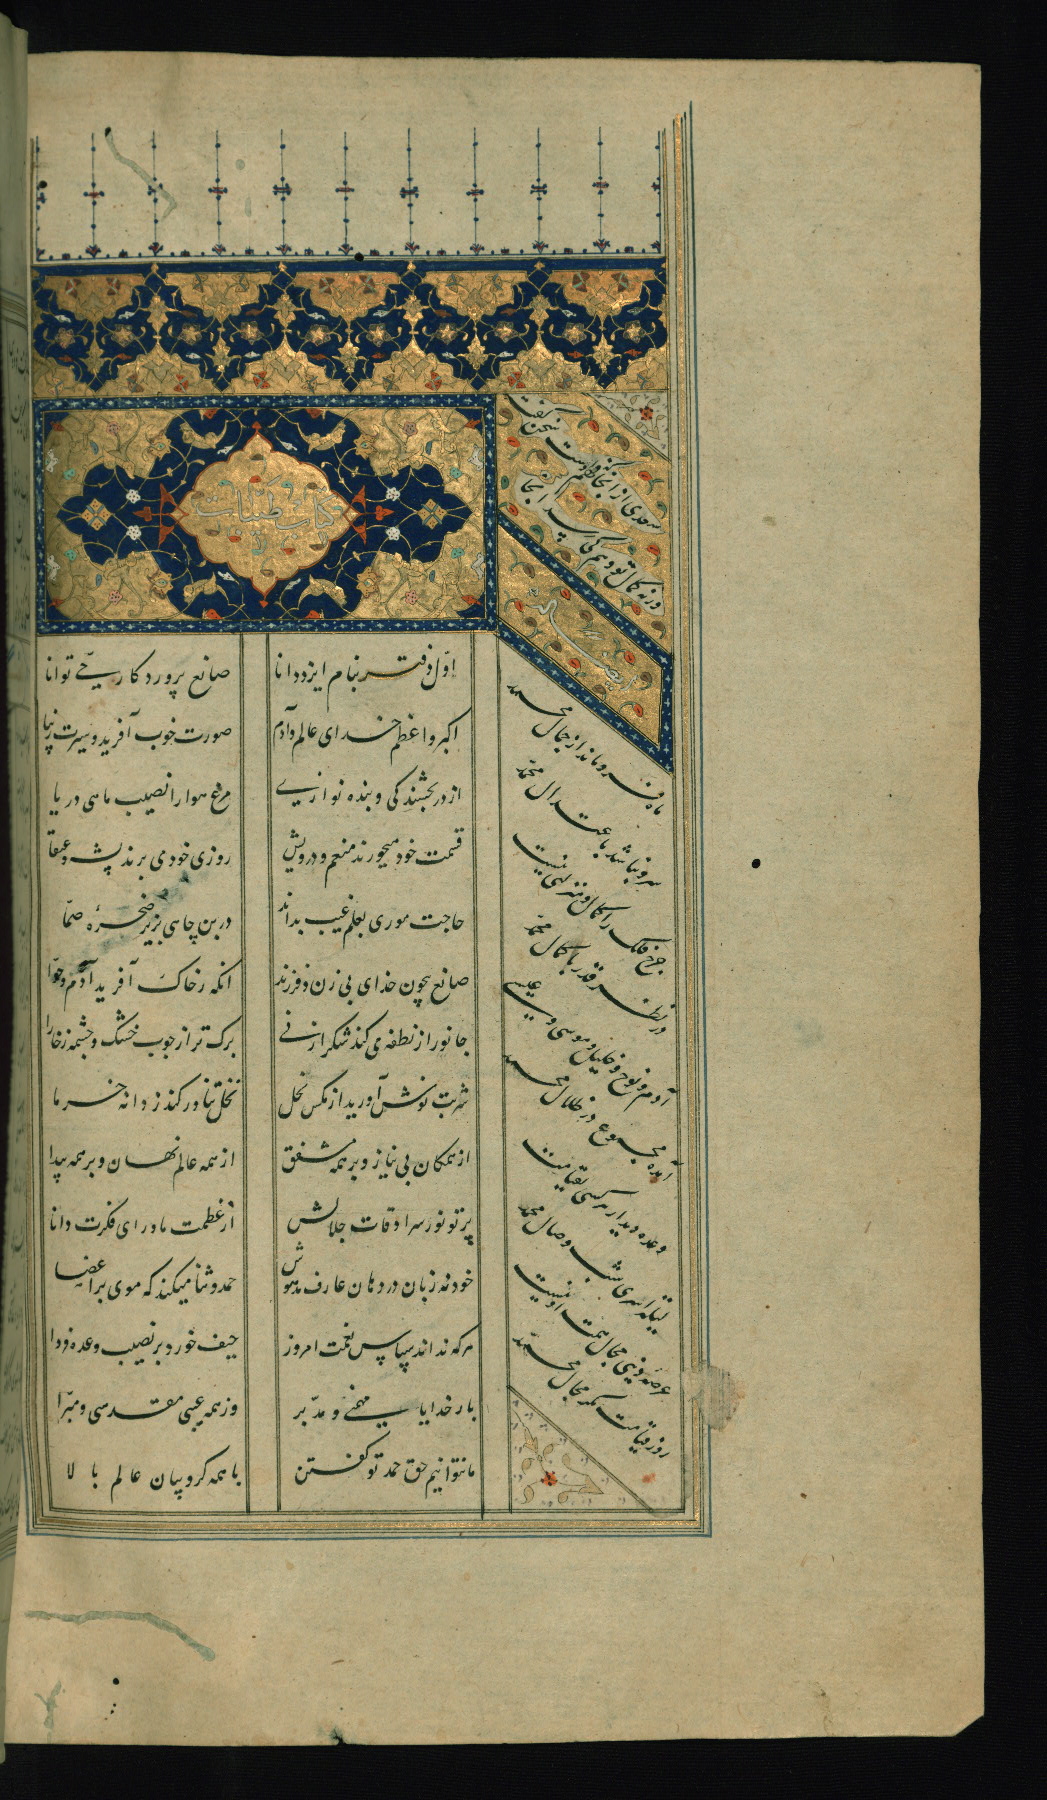 کتاب طیبات
اول دفتر بنام ایزد دانا
صانع پروردگار حی توانا
اکبر و اعظم خدای عالم و آدم
صورت خوب آفرید و سیرت زیبا
از در بخشندگی و بنده نوازی
مرغ هوا را نصیب ماهی دریا
قسمت خود میخورند منعم و درویش
روزی خود می برند پشه و عنقا
حاجت موری بعلم غیب بداند
در بن چاهی بزیر صخره صما
صانع بیچون خدای بی زن و فرزند
انکه ز خاک آفرید آدم و حوا
جانور از نطفه می کند شکر از نی
برک تر از چوب خشک و چشمه ز خارا
شربت نوش آورید از مکس نحل
نخل تناور کند ز دانه خرما
از همکان بی نیاز و بر همه مشفق
از همه عالم نهان و بر همه پیدا
پرتو نور سرادقات جلالش
از عظمت ماورای فکرت دانا
خود نه زبان در دهان عارف مدهوش
حمد و ثنا میکند که موی بر اعضا
هر که نداند سپاس نعمت امروز
حیف خورد بر نصیب وعده فردا
بار خدایا مهیمنی و مدبر
وز همه عیبی مقدسی و مبرا
ما نتوانیم حق حمد تو گفتن
با همه کروبیان عالم بالا
سعدی از آنجا که فهم اوست سخن گفت
ورنه کمال تو وهم کی رسد انجا
ماه فروماند از جمال محمد
سرو نباشد باعتدال محمد
چرخ فلک را کمال و منزلتی نیست
در نظر قدر با کمال محمد
آدم و نوح و خلیل و موسی و عیسی
آمده مجموع در ظلال محمد
وعده دیدار هر کسی بقیامت
لیله اسری شب وصال محمد
عرصه دنیی مجال همت او نیست
روز قیامت نگر مجال محمد